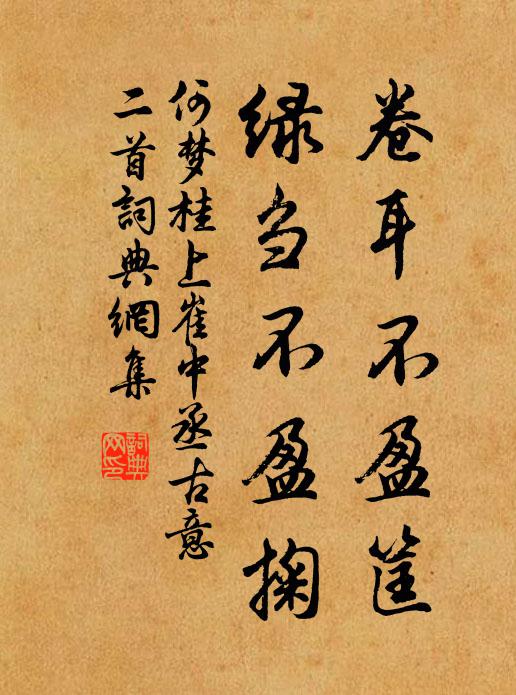 卷耳不盈筐
緑刍不盈掬
何梦桂上崔中丞古意
二首詞典網集
詞典网印